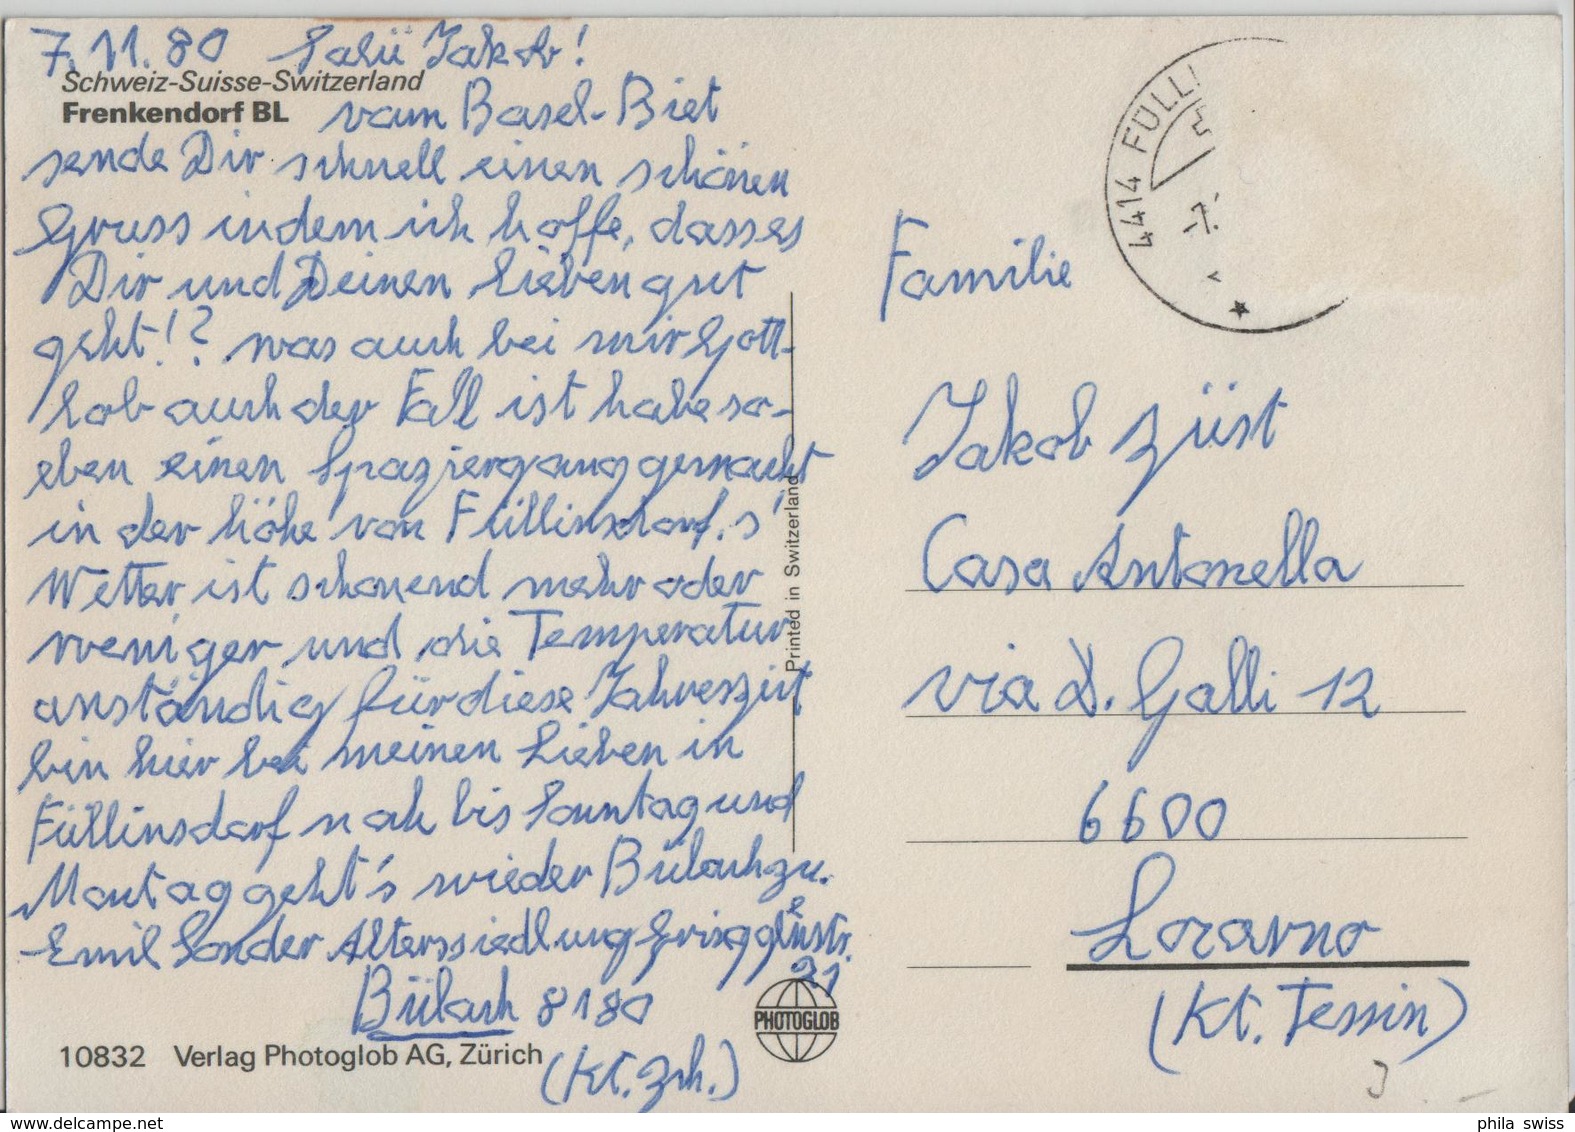 7.11.80 Salü Jakob!
Schweiz-Suisse-Switzerland
Frenkendorf BL
vom Basel-Biet
sende Dir schnell einen schönen
Gruss indem ich hoffe, dass es
Dir und Deinen Lieben gut
geht!? was auch bei mir Gott-
lob auch der Fall ist habe so-
eben einen Spaziergang gemacht
in der höhe von Füllinsdorf. s'
Wetter ist schonend mehr oder
weniger und die Temperatur
anständig für diese Jahreszeit
bin hier bei meinen Lieben in
Füllinsdorf noch bis Sonntag und
Montag geht's wieder Bülach zu.
Emil Sonder Alterssiedlung
21
Bülach 8180
(Kt. Zrh.)
10832 Verlag Photoglob AG, Zürich
PHOTOGLOB
Printed in Switzerland
4414 FÜLLI
-7.
Familie
Jakob Züst
Casa Antonella
via D. Galli 12
6600
Locarno
(Kt. Tessin)
phila swiss